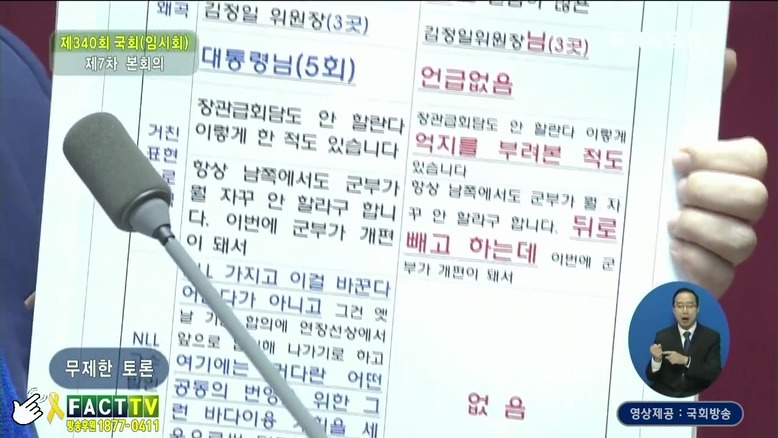 왜곡
김정일 위원장(3곳)
대통령님(5회)
김정일위원장님(3곳)
언급없음
제340회 국회(임시회)
제7차 본회의
거친
표현
장관급회담도 안 할란다
이렇게 한 적도 있습니다
항상 남쪽에서도 군부가
뭘 자꾸 안 할라구 합니
다. 이번에 군부가 개편
이 돼서
장관급회담도 안 할란다 이렇게
억지를 부려본 적도
있습니다
항상 남쪽에서도 군부가 뭘 자
꾸 안 할라구 합니다. 뒤로
빼고 하는데 이번에 군
부가 개편이 돼서
NLL
가지고 이걸 바꾼다
가 아니고 그런 옛
날 합의에 연장선상에서
앞으로 나가기로 하고
여기에는 어떤
공동의 위한 그
런 바다이용
없 음
무제한 토론
FACT TV
방송후원 1877-0411
영상제공 : 국회방송